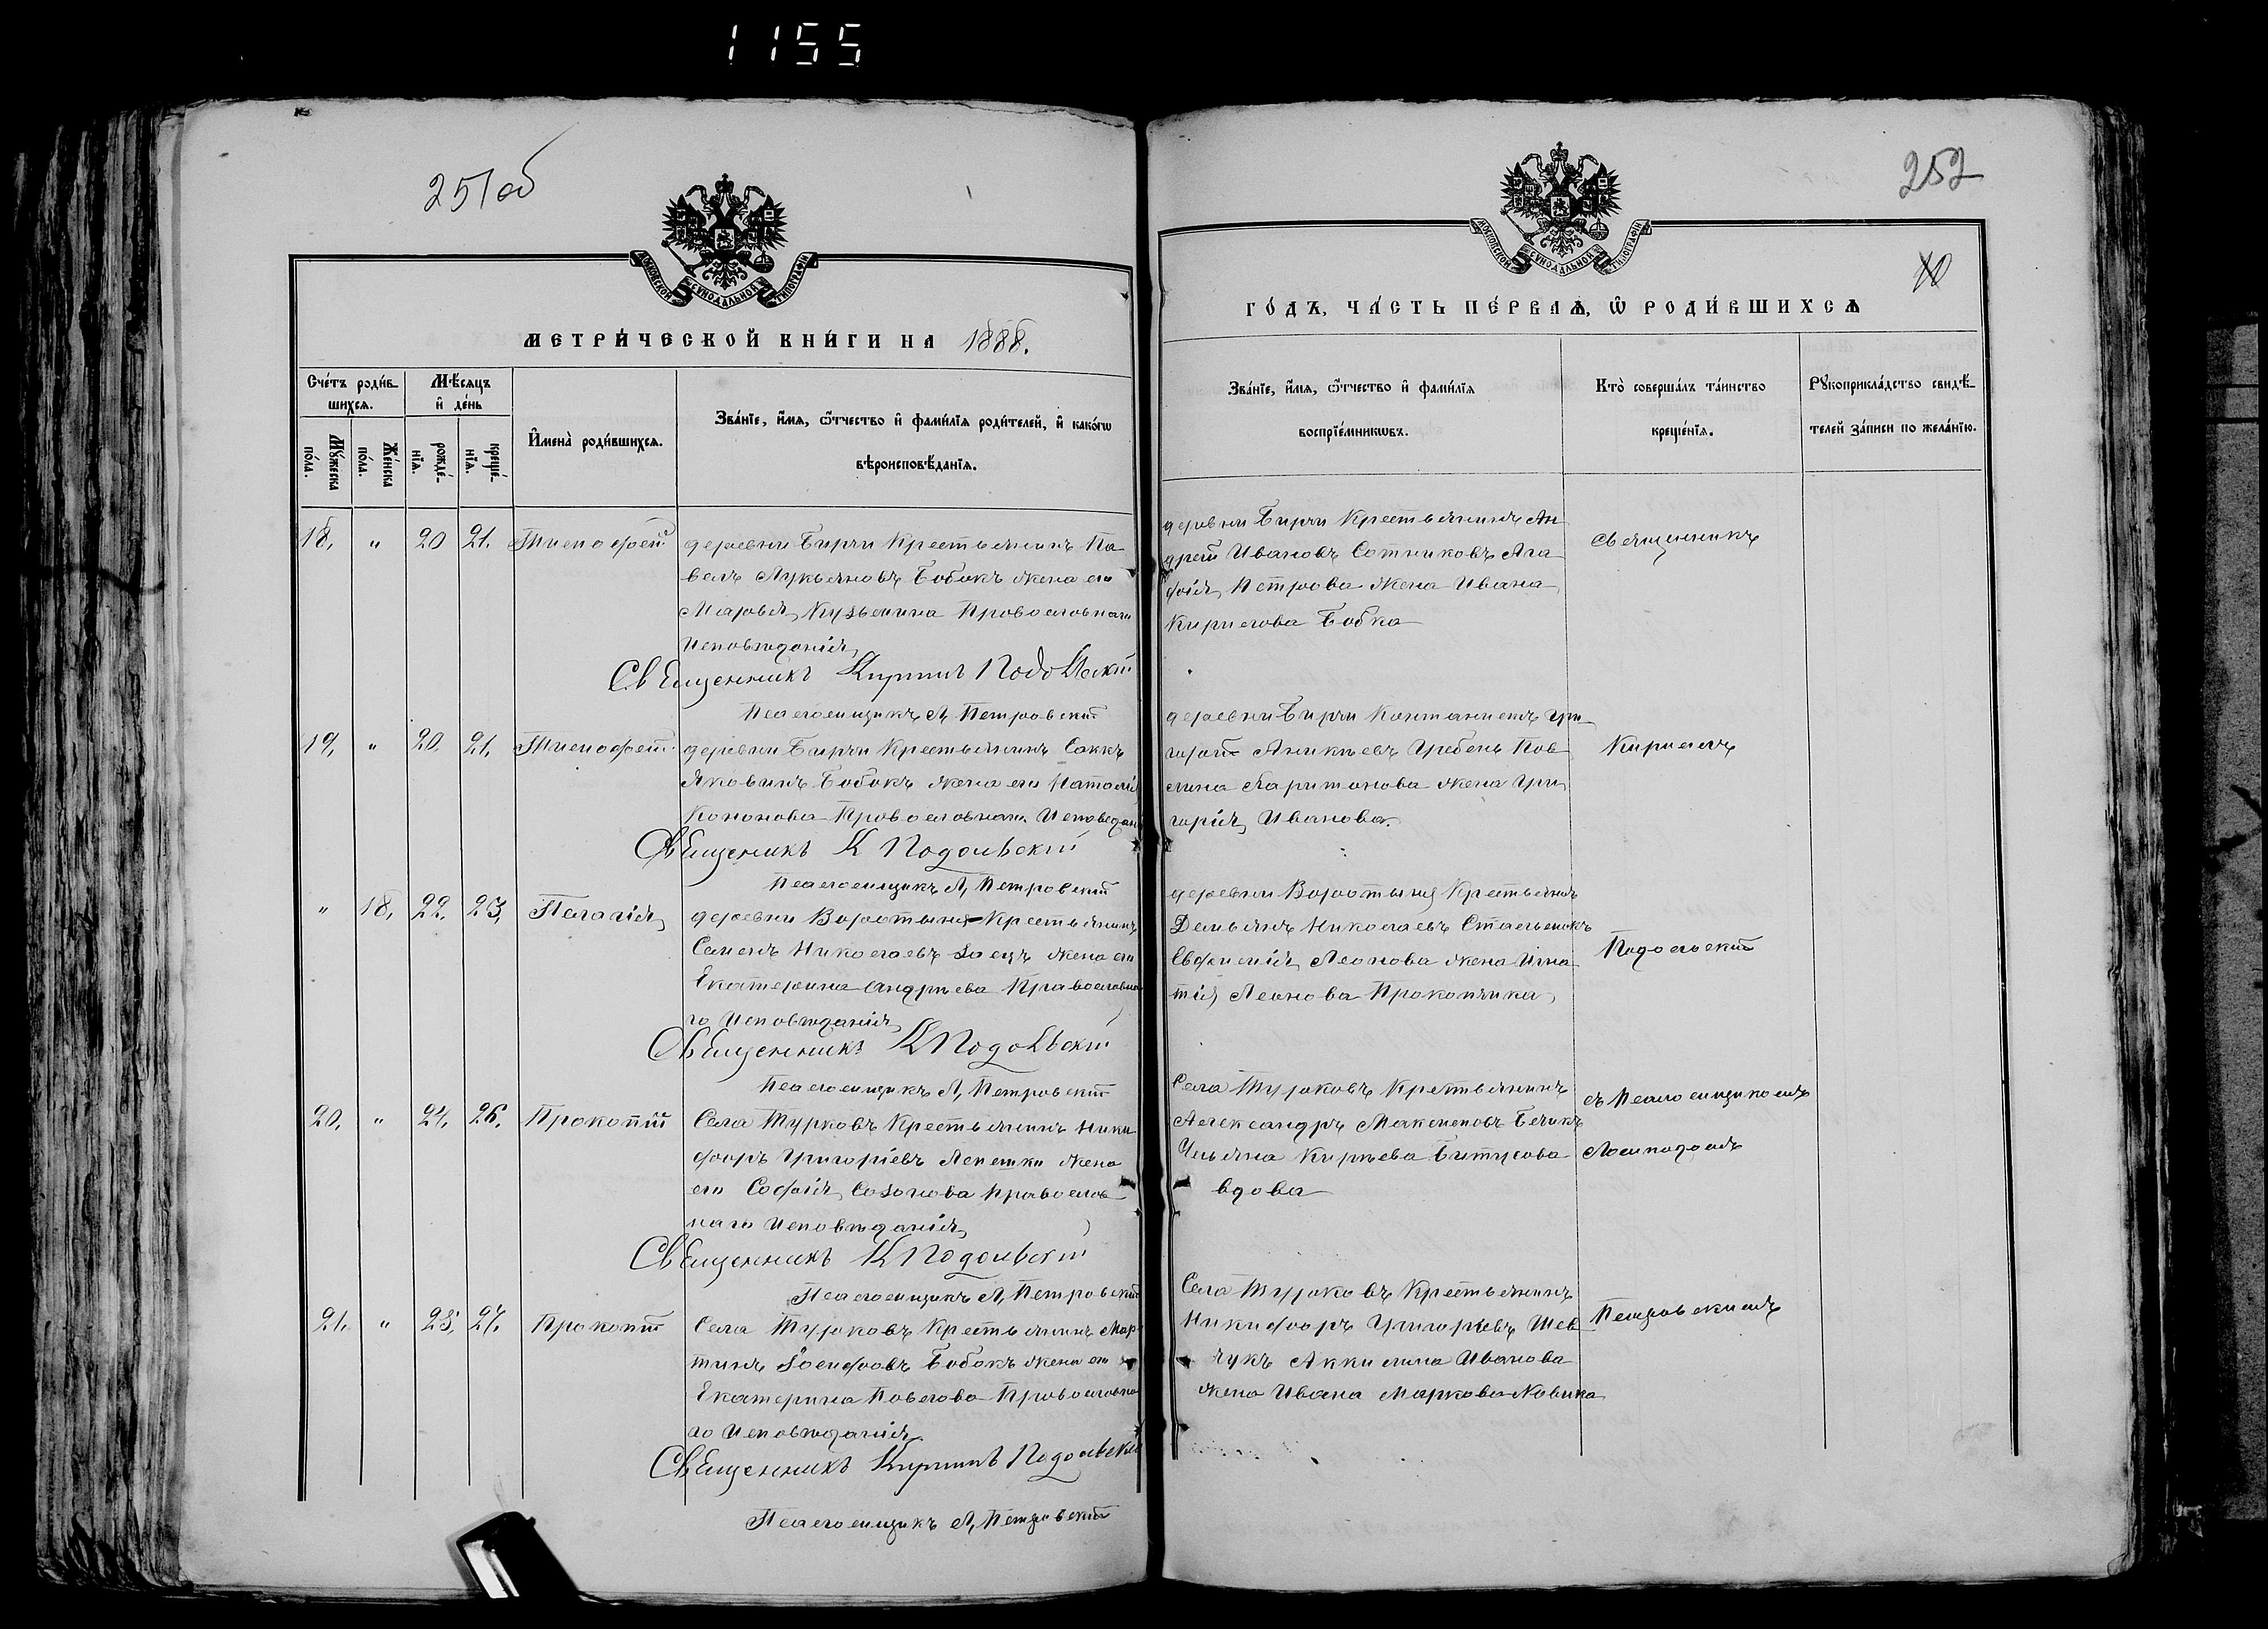 1155
251об
МОСКОВСКОЙ СѴНОДАЛЬНОЙ ТИПОГРАФІИ
МЕТРИ́ЧЕСКОЙ КНИ́ГИ НА 1888.
Сче́тъ роди́в-
шихся.
Мѣ́сяцъ
и҆ де́нь
Мꙋ́жеска
по́ла.
Же́нска
по́ла.
рожде́-
нїя.
креще́-
нїя.
И҆мена̀ роди́вшихся.
Зва́нїе, и҆́мя, ѻ҆́тчество и҆ фами́лїя роди́телей, и҆ како́гѡ
вѣроисповѣ́данїя.
18. " 20 21. Тимофей
деревни Бирчи Крестьянинъ Па-
велъ Лукьяновъ Бобокъ жена его
Марья Кузьмина Православнаго
Исповѣданія
Священникъ Кириллъ Подольскій
Псаломщикъ Л, Петровскій
19. " 20. 21. Тимофей
деревни Бирчи Крестьянинъ Савкъ
Яковинъ Бобокъ жена его Наталія
Кононова Православнаго Исповѣдан
Священникъ К Подольскій
Псаломщикъ Л, Петровскій
" 18. 22. 23. Пелагія
деревни Воротыня Крестьянинъ
Семенъ Николаевъ Заецъ жена его
Екатерина Андрѣева Православна
го Исповѣданія
Священникъ К Подольскій
Псаломщикъ Л, Петровскій
20. " 24. 26. Прокопій
Села Турковъ Крестьянинъ Ники
форъ Григоріевъ Лепешко жена
его Софія Созонова Православ
наго Исповѣданія
Священникъ К Подольскій
Псаломщикъ Л, Петровскій
21. " 25. 27. Прокопій
Села Турковъ Крестьянинъ Мар
тинъ Іосифовъ Бобокъ жена его
Екатерина Павлова Православна
го Исповѣданія
Священникъ Кириллъ Подольскій
Псаломщикъ Л, Петровскій
252
МОСКОВСКОЙ СѴНОДАЛЬНОЙ ТИПОГРАФІИ
ГО́ДЪ, ЧА́СТЬ ПЕ́РВАЯ, Ѡ҆ РОДИ́ВШИХСЯ
Зва́нїе, и҆́мя, ѻ҆́тчество и҆ фами́лїя
воспрїе́мникѡвъ.
Кто̀ соверша́лъ та́инство
креще́нїя.
Рꙋкоприкла́дство свидѣ́-
телей за́писи по жела́нїю.
деревни Бирчи Крестьянинъ Ан
дрей Ивановъ Сотниковъ Ага
фія Петрова жена Ивана
Кирилова Бобка
Священникъ
деревни Бирчи Гри
горій Аникѣевъ Гребень Пав
лина Харитонова жена Гри
горія Иванова.
Кириллъ
деревни Воротыня Крестьянинъ
Демьянъ Николаевъ Стальмокъ
Евфимія Леонова жена Игна
тія Леонова Прокопчика
Подольскій
Села Турковъ Крестьянинъ
Александръ Максимовъ Бчикъ
Ульяна Кирѣева Битусова
вдова
съ Псаломщикомъ
Леонидомъ
Села Турковъ Крестьянинъ
Никифоръ Григорьевъ Шев
чукъ Аккилина Иванова
жена Ивана Маркова Новика
Петровскимъ